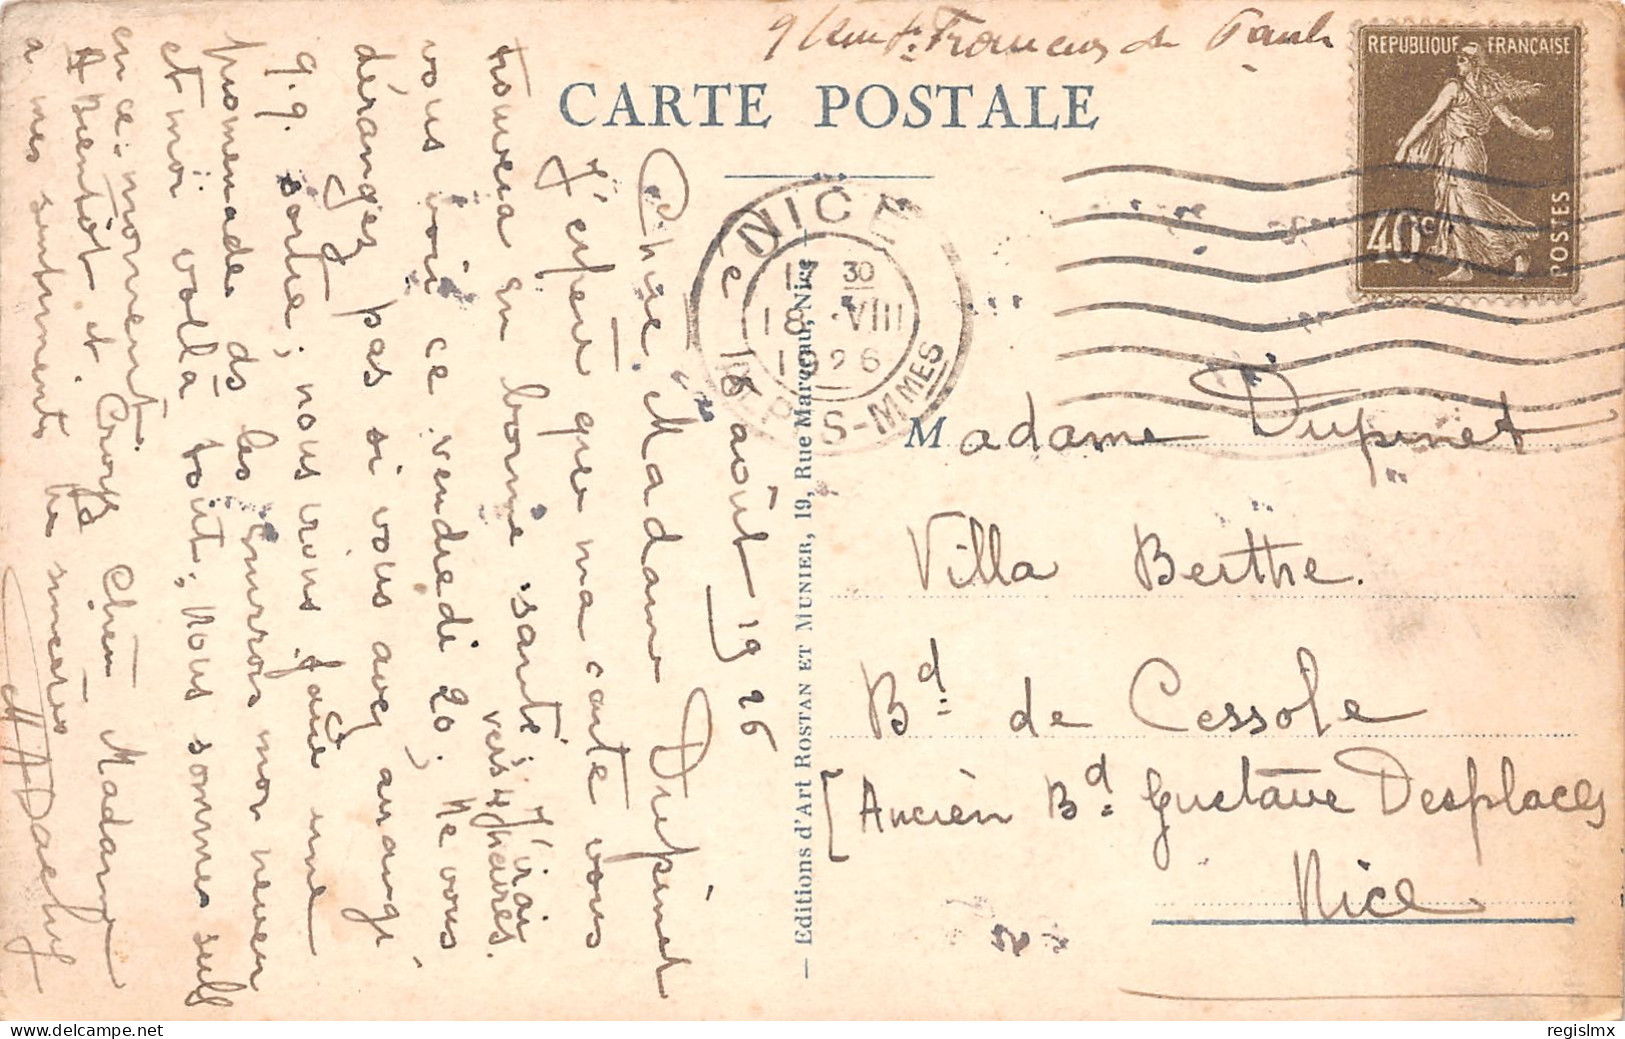 9 rue St François de Paule
CARTE POSTALE
REPUBLIQUE FRANÇAISE
40c
POSTES
NICE
17 30
18 VIII
1926
ALPES-MMES
Le 18 août 1926
Chère Madame Dupinet
J'espère que ma carte vous
trouvera en bonne santé; J'irai
vers 4 heures.
vous voir ce vendredi 20; Ne vous
dérangez pas si vous avez arrangé
q.q. sortie; nous irons faire une
promenade ds les environs mon neveu
et moi voilà tout; Nous sommes seuls
en ce moment.
A Bientôt et Croyez Chère Madame
a mes sentiments les sincères
Madame Dupinet
Villa Berthe.
Bd. de Cessole
[Ancien Bd. Gustave Desplaces
Nice
— Editions d'Art ROSTAN ET MUNIER, 19, Rue Marceau, Nice
regislmx
delcampe.net